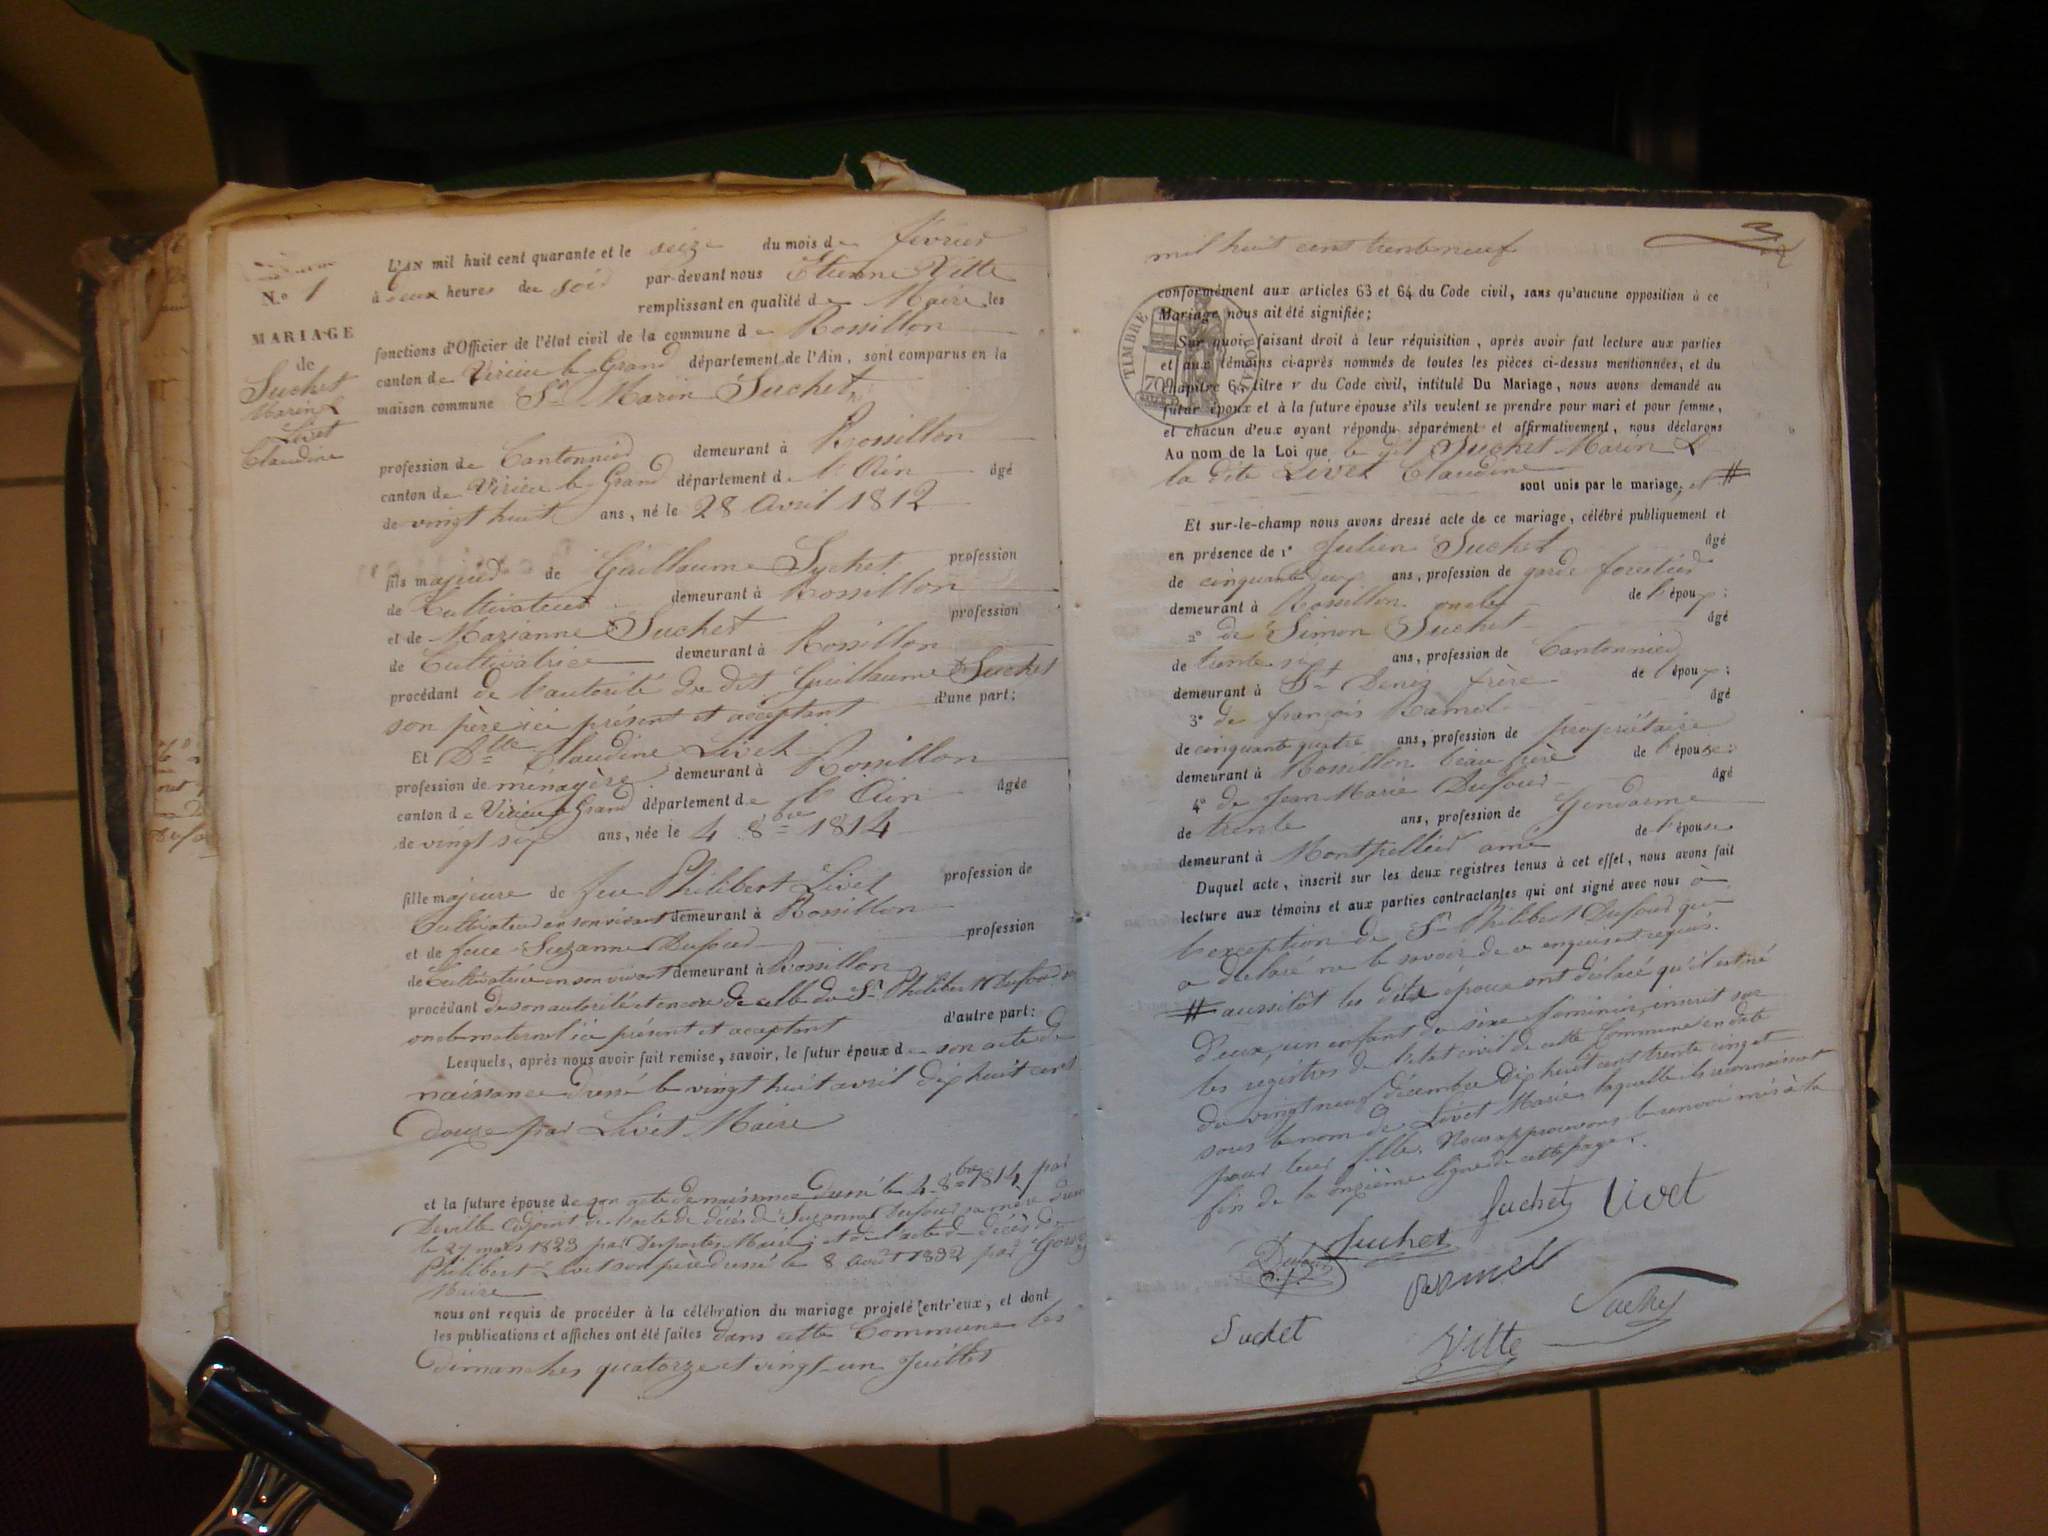 N.o 1
MARIAGE
de
Suchet
Marin &
Livet
Claudine
L'AN mil huit cent quarante et le seize du mois de février
à deux heures du soir par-devant nous Etienne Vitte
remplissant en qualité de Maire les
fonctions d'Officier de l'état civil de la commune de Rossillon
canton de Virieu le Grand département de l'Ain, sont comparus en la
maison commune Sr Marin Suchet
profession de Cantonnier demeurant à Rossillon
canton de Virieu le Grand département de l'Ain âgé
de vingt huit ans, né le 28 avril 1812
fils majeur de Guillaume Suchet profession
de Cultivateur demeurant à Rossillon
et de Marianne Suchet profession
de Cultivatrice demeurant à Rossillon
procédant de l'autorité du dit Guillaume Suchet
son père ici présent et acceptant d'une part;
Et Dlle Claudine Livet
profession de ménagère demeurant à Rossillon
canton de Virieu le Grand département de l'Ain âgée
de vingt six ans, née le 4 8bre 1814
fille majeure de feu Philibert Livet profession de
Cultivateur en son vivant demeurant à Rossillon
et de feue Suzanne Dufour profession
de Cultivatrice en son vivant demeurant à Rossillon
procédant de son autorité et encore de celle du Sr Philibert Dufour
oncle maternel ici présent et acceptant d'autre part:
Lesquels, après nous avoir fait remise, savoir, le futur époux de son acte de
naissance dressé le vingt huit avril dix huit cent
douze par Livet Maire
et la future épouse de son acte de naissance dressé le 4 8bre 1814 par
Deville adjoint de l'acte de décès de Suzanne Dufour sa mère dressé
le 27 mars 1823 par Desportes Maire; et de l'acte de décès de
Philibert Livet son père dressé le 8 août 1832 par
Maire
nous ont requis de procéder à la célébration du mariage projeté entr'eux, et dont
les publications et affiches ont été faites dans cette Commune les
dimanches quatorze et vingt-un Juillet
mil huit cent trente neuf
conformément aux articles 63 et 64 du Code civil, sans qu'aucune opposition à ce
Mariage nous ait été signifiée;
TIMBRE ROYAL
Sur quoi, faisant droit à leur réquisition, après avoir fait lecture aux parties
et aux témoins ci-après nommés de toutes les pièces ci-dessus mentionnées, et du
chapitre 6, titre v du Code civil, intitulé Du Mariage, nous avons demandé au
futur époux et à la future épouse s'ils veulent se prendre pour mari et pour femme,
et chacun d'eux ayant répondu séparément et affirmativement, nous déclarons
Au nom de la Loi que le dit Suchet Marin &
la dite Livet Claudine
sont unis par le mariage, et #
Et sur-le-champ nous avons dressé acte de ce mariage, célébré publiquement et
en présence de 1° Julien Suchet âgé
de cinquante ans, profession de garde forestier
demeurant à Rossillon oncle de l'époux;
2° de Simon Suchet âgé
de trente six ans, profession de Cantonnier
demeurant à St Denis frère de l'époux;
3° de françois Ramel âgé
de cinquante quatre ans, profession de propriétaire
demeurant à Rossillon beau frère de l'épouse;
4° de Jean Marie Dufour âgé
de trente ans, profession de Gendarme
demeurant à Montpellier ami de l'épouse
Duquel acte, inscrit sur les deux registres tenus à cet effet, nous avons fait
lecture aux témoins et aux parties contractantes qui ont signé avec nous à
l'exception de Sr Philibert Dufour qui
a déclaré ne le savoir de ce enquis et requis.
# aussitôt les dits époux ont déclaré qu'il est né
d'eux, un enfant de sexe féminin, inscrit sur
les régistres de l'état civil de cette Commune en date
du vingt neuf décembre dix huit cent trente cinq et
sous le nom de Livet Marie, laquelle ils reconnaissent
pour leur fille. Nous approuvons le renvoi mis à la
fin de la onzième ligne de cette page.
Suchet Livet
Dufour Suchet
Ramel
Suchet
Suchet
Vitte